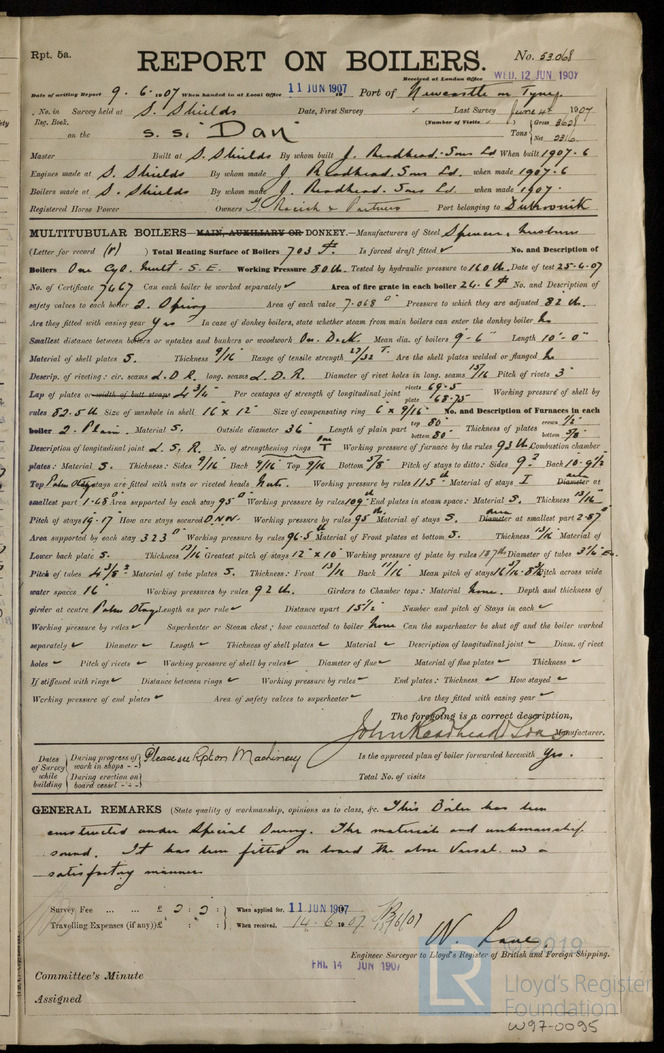 Rpt. 5a.
REPORT ON BOILERS.
No. 53068
Received at London Office WED. 12 JUN 1907
Date of writing Report 9.6.1907 When handed in at Local Office 11 JUN 1907 Port of Newcastle on Tyne
No. in Reg. Book. Survey held at S. Shields Date, First Survey Last Survey June 4th 1907
(Number of Visits )
on the S.S. "Dan" Tons { Gross 3628 Net 2316
Master Built at S. Shields By whom built J. Readhead & Sons Ld When built 1907.6
Engines made at S. Shields By whom made J. Readhead & Sons Ld. when made 1907.6
Boilers made at S. Shields By whom made J. Readhead & Sons Ld. when made 1907.
Registered Horse Power Owners & Partners Port belonging to Dubrovnik
MULTITUBULAR BOILERS MAIN, AUXILIARY OR DONKEY.—Manufacturers of Steel Spencer &
(Letter for record (r) ) Total Heating Surface of Boilers 703 Is forced draft fitted ✓ No. and Description of
Boilers One Cyl. Mult. S.E. Working Pressure 80 lb. Tested by hydraulic pressure to 160 lb. Date of test 25.4.07
No. of Certificate 7467 Can each boiler be worked separately ✓ Area of fire grate in each boiler 24.6 No. and Description of
safety valves to each boiler 2. Spring Area of each valve 7.068 □" Pressure to which they are adjusted 82 lb
Are they fitted with easing gear Yes In case of donkey boilers, state whether steam from main boilers can enter the donkey boiler No
Smallest distance between boilers or uptakes and bunkers or woodwork On Deck. Mean dia. of boilers 9'-6" Length 10'-0"
Material of shell plates S. Thickness 9/16 Range of tensile strength 27/32 T. Are the shell plates welded or flanged No
Descrip. of riveting: cir. seams L.D.R. long. seams L.D.R. Diameter of rivet holes in long. seams 15/16 Pitch of rivets 3"
Lap of plates or width of butt straps 4 3/4" Per centages of strength of longitudinal joint rivets 69.5 plate 68.75 Working pressure of shell by
rules 82.5 lb Size of manhole in shell 16 x 12" Size of compensating ring 6 x 9/16" No. and Description of Furnaces in each
boiler 2. Plain. Material S. Outside diameter 36" Length of plain part top 80" bottom 80" Thickness of plates crown 1/2" bottom 5/8"
Description of longitudinal joint L.S.R. No. of strengthening rings One T Working pressure of furnace by the rules 93 lb Combustion chamber
plates: Material S. Thickness: Sides 9/16 Back 9/16 Top 9/16 Bottom 5/8" Pitch of stays to ditto: Sides 9 Back 10.9 1/2
Top stays are fitted with nuts or riveted heads Nuts. Working pressure by rules 115 lb Material of stays I Diameter area at
smallest part 1.48 □" Area supported by each stay 95 □" Working pressure by rules 109 lb End plates in steam space: Material S. Thickness 13/16"
Pitch of stays 19.17 How are stays secured D.N.W. Working pressure by rules 95 lb Material of stays S. Diameter area at smallest part 2.87 □"
Area supported by each stay 323 □" Working pressure by rules 96.5 lb Material of Front plates at bottom S. Thickness 13/16 Material of
Lower back plate S. Thickness 13/16 Greatest pitch of stays 12" x 10" Working pressure of plate by rules 187 lb Diameter of tubes 3 1/2"
Pitch of tubes 4 3/8" Material of tube plates S. Thickness: Front 13/16 Back 11/16 Mean pitch of stays Pitch across wide
water spaces 16" Working pressures by rules 92 lb. Girders to Chamber tops: Material None. Depth and thickness of
girder at centre Length as per rule ✓ Distance apart 15 1/2 Number and pitch of Stays in each ✓
Working pressure by rules ✓ Superheater or Steam chest; how connected to boiler None Can the superheater be shut off and the boiler worked
separately ✓ Diameter ✓ Length ✓ Thickness of shell plates ✓ Material ✓ Description of longitudinal joint ✓ Diam. of rivet
holes ✓ Pitch of rivets ✓ Working pressure of shell by rules ✓ Diameter of flue ✓ Material of flue plates ✓ Thickness ✓
If stiffened with rings ✓ Distance between rings ✓ Working pressure by rules ✓ End plates: Thickness ✓ How stayed ✓
Working pressure of end plates ✓ Area of safety valves to superheater ✓ Are they fitted with easing gear ✓
The foregoing is a correct description,
John Readhead & Sons Manufacturer.
Dates of Survey while building { During progress of work in shops - - During erection on board vessel - - - } Please see Rpt on Machinery Is the approved plan of boiler forwarded herewith Yes.
Total No. of visits
GENERAL REMARKS (State quality of workmanship, opinions as to class, &c. This Boiler has been
constructed under Special Survey. The materials and workmanship
sound. It has been fitted on board the above Vessel in a
satisfactory manner
Survey Fee ... ... £ 2 : 2 : When applied for, 11 JUN 1907
Travelling Expenses (if any) £ : : When received, 14.6.1907
W. Lave.
Engineer Surveyor to Lloyd's Register of British and Foreign Shipping.
FRI. 14 JUN 1907
Committee's Minute
Assigned
© 2019
LR
Lloyd's Register
Foundation
W97-0095